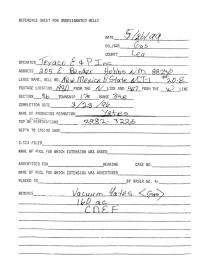 REFERENCE SHEET FOR UNDESIGNATED WELLS
DATE 5/26/99
OIL/GAS Gas
COUNTY Lea
OPERATOR Texaco E & P Inc
ADDRESS 205 E Bender Hobbs NM 88240
LEASE NAME, WELL NO. New Mexico O State NCT-1 #20-E
FOOTAGE LOCATION FROM THE N LINE AND FROM THE W LINE
SECTION 36 TOWNSHIP 17S RANGE 34E
COMPLETION DATE 3/23/96
NAME OF PRODUCING FORMATION Yates
TOP OF PERFORATIONS 2982-3226
DEPTH TO CASING SHOE
C-123 FILED
NAME OF POOL FOR WHICH EXTENSION WAS ASKED
ADVERTISED FOR HEARING CASE NO.
NAME OF POOL FOR WHICH EXTENSION WAS ADVERTISED
PLACED IN BY ORDER NO. R-
REMARKS Vacuum Yates <Gas>
160 ac
CDEF